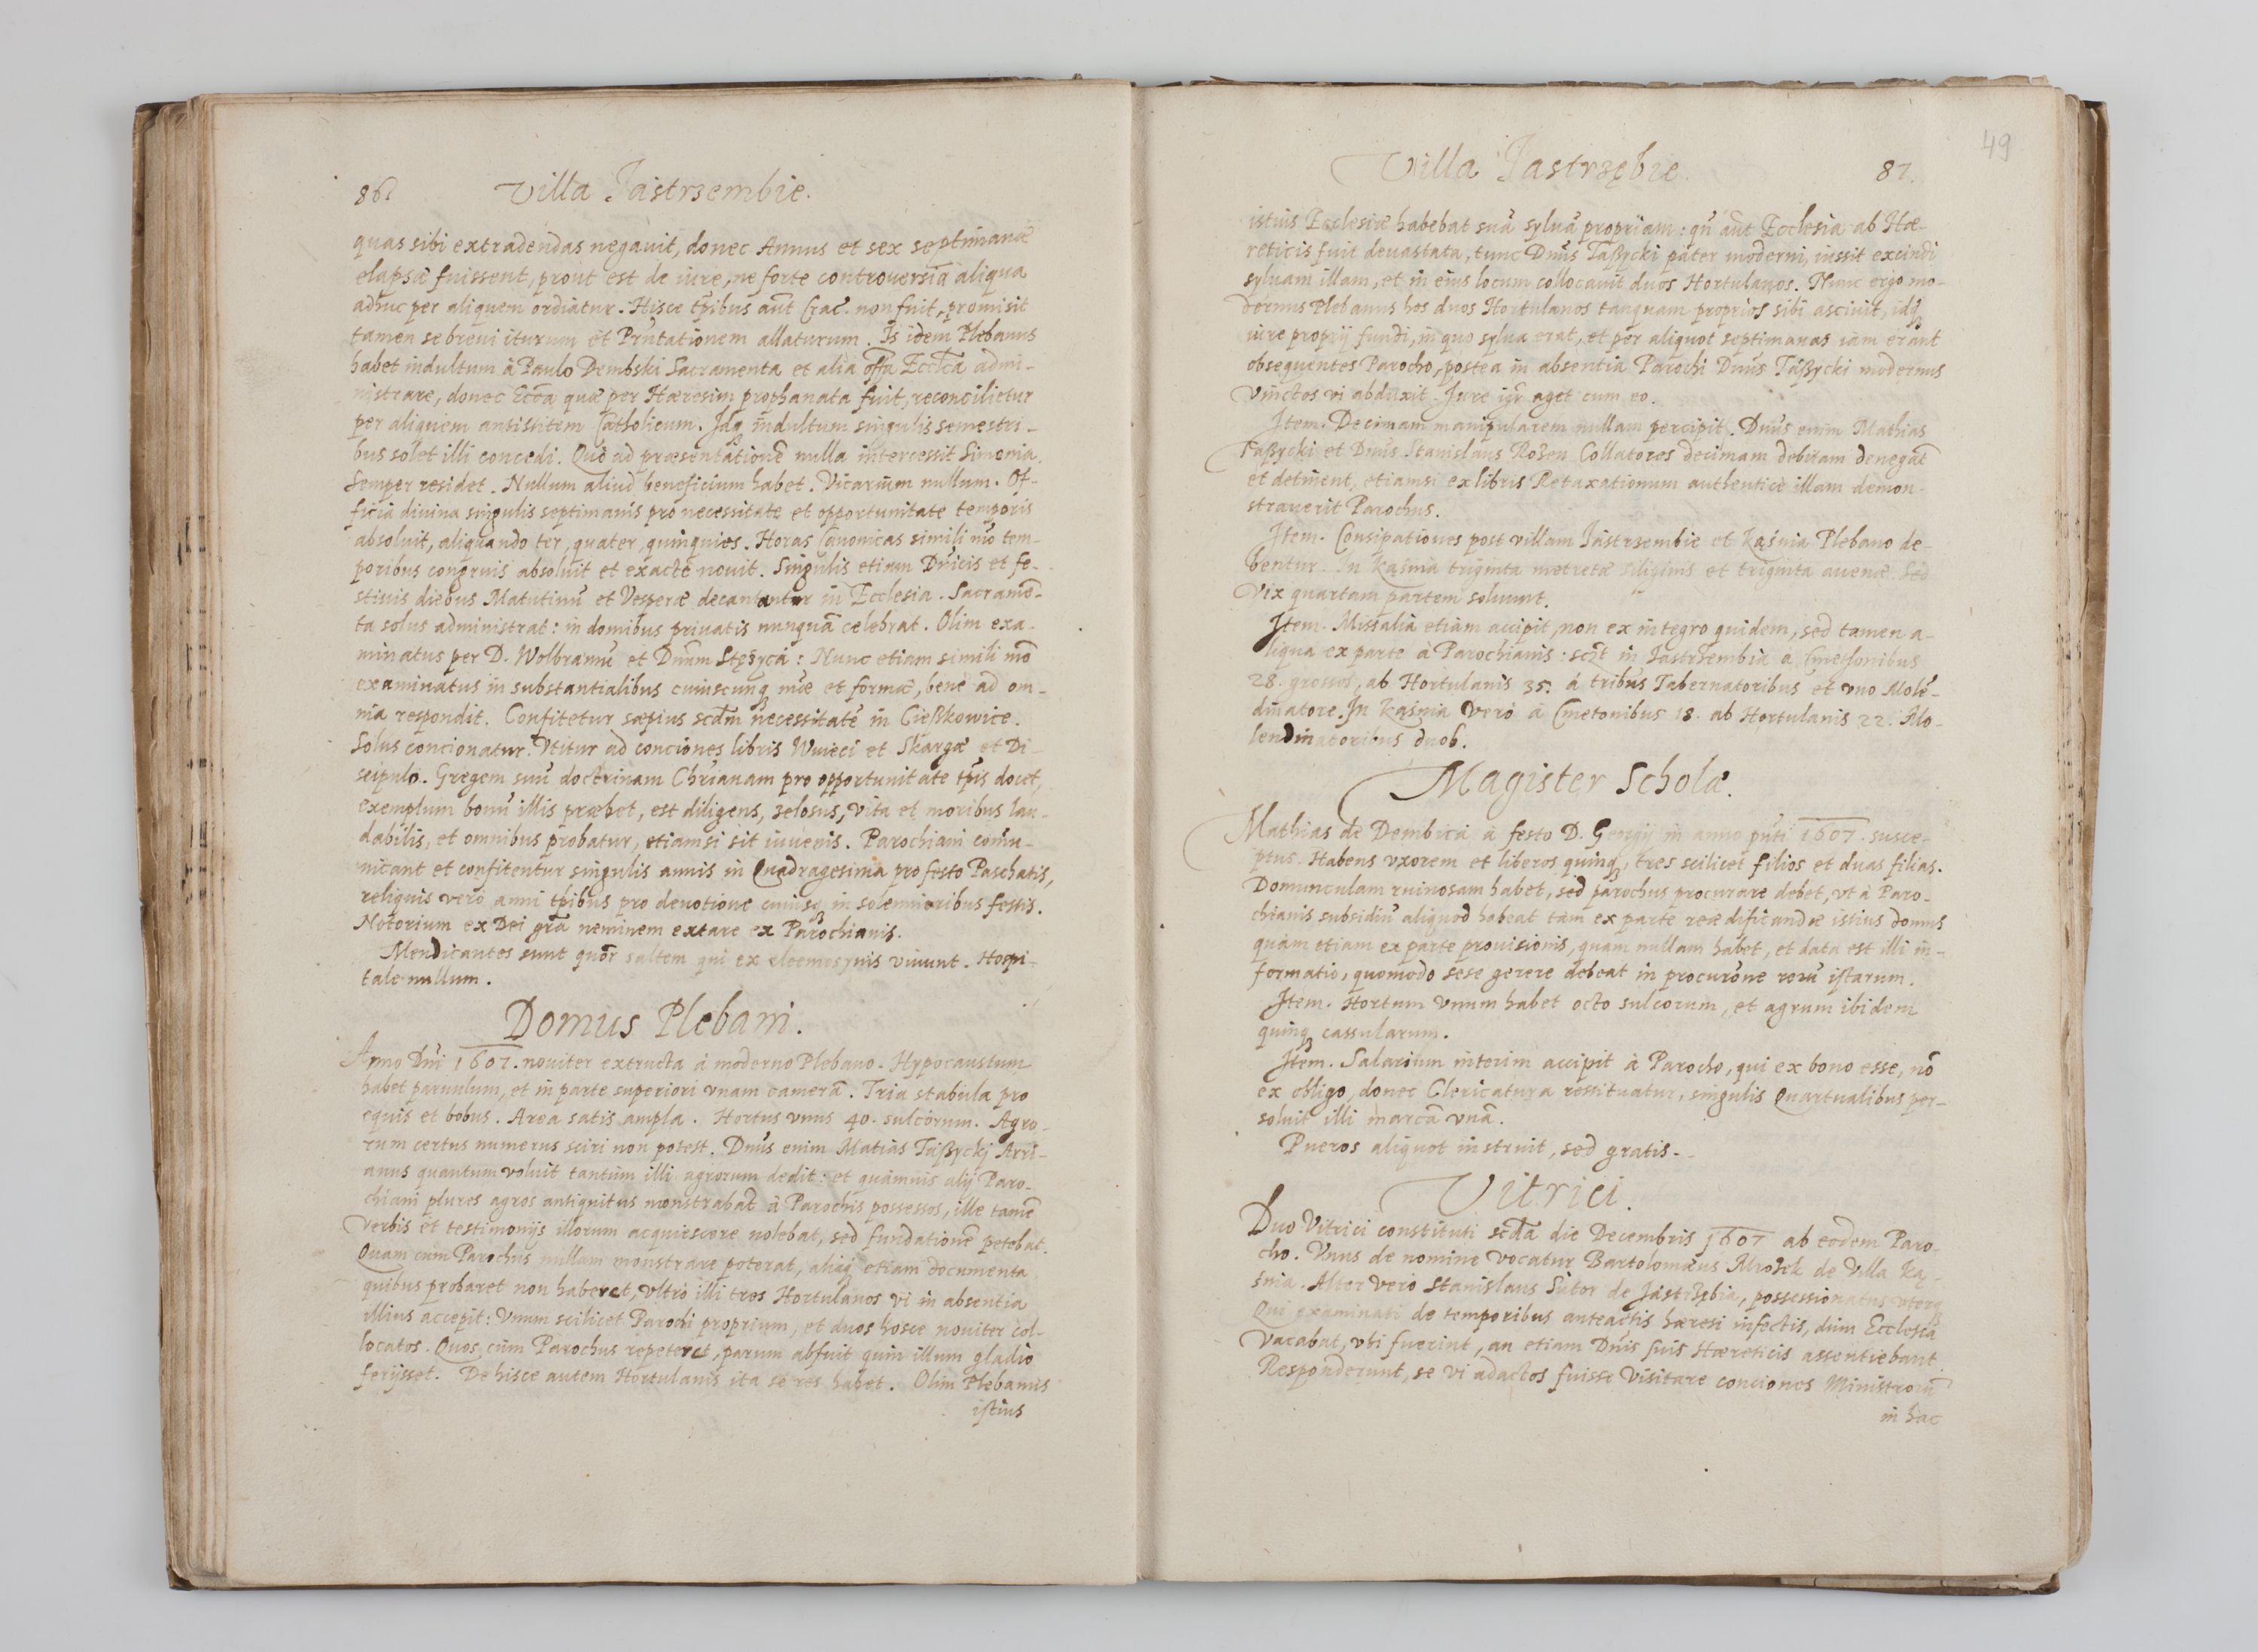 86.
Villa Jastrzembie.
quas sibi extradendas negauit, donec Annus et sex septimanæ
elapsæ fuissent, prout est de iure, ne forte controversia aliqua
adhuc per aliquem ordiatur. Hisce tp̄ibus aūt Crac. non fuit, promisit
tamen se breui iturum et Prn̄tationem allaturum. Is idem Plebanus
habet indultum à Paulo Dembski Sacramenta et alia offā Eccl̄ca admi-
nistrare, donec Ecc̄a quæ per Hæresim prophanata fuit, reconcilietur
per aliquem antistitem Catholicum. Idq indultum singulis semestri-
bus solet illi concedi. Quo ad præsentationē nulla intercessit Simonia.
Semper residet. Nullum aliud beneficium habet. Vicarium nullum. Of-
ficia diuina singulis septimanis pro necessitate et opportunitate temporis
absoluit, aliquando ter, quater, quinquies. Horas Canonicas simili mō tem-
poribus congruis absoluit et exactè nouit. Singulis etiam Dn̄icis et fe-
stiuis diebus Matutinū et Vesperæ decantantur in Ecclesia. Sacramē-
ta solus administrat: in domibus priuatis nunquā celebrat. Olim exa-
minatus per D. Wolbramū et Dnūm Stężycā: Nunc etiam simili mō
examinatus in substantialibus cuiuscunq mæ et formæ, bene ad om-
nia respondit. Confitetur sæpius scdm̄ necessitatē in Cießkowice.
Solus concionatur. Vtitur ad conciones libris Wuieci et Skargæ et Di-
scipulo. Gregem suū doctrinam Chr̄ianam pro opportunitate tp̄is docet,
exemplum bonū illis præbet, est diligens, zelosus, vita et moribus lau-
dabilis, et omnibus probatur, etiamsi sit iuuenis. Parochiani comū-
nicant et confitentur singulis annis in Quadragesima pro festo Paschatis,
reliquis verò anni tp̄ibus pro deuotione cuiusq in solemnioribus festis.
Notorium ex Dei grā neminem extare ex Parochianis.
Mendicantes sunt quōr saltem qui ex eleemosynis viuunt. Hospi-
tale nullum.
Domus Plebani.
Anno Dn̄i 1607. nouiter extructa à moderno Plebano. Hypocaustum
habet paruulum, et in parte superiori vnam camerā. Tria stabula pro
equis et bobus. Area satis ampla. Hortus vnus 40. sulcorum. Agro-
rum certus numerus sciri non potest. Dnūs enim Matias Taßyckj Arri-
anus quantum voluit tantùm illi agrorum dedit: et quamuis alij Paro-
chiani plures agros antiquitus monstrabāt à Parochis possessos, ille tamē
verbis et testimonijs illorum acquiescere nolebat, sed fundationē petebat.
Quam cùm Parochus nullam monstrare poterat, aliaq etiam documenta
quibus probaret non haberet, vltrò illi tres Hortulanos vi in absentia
illius accepit: Vnum scilicet Parochi proprium, et duos hosce nouiter col-
locatos. Quos cùm Parochus repeteret, parum abfuit quin illum gladio
ferijsset. De hisce autem Hortulanis ita se res habet. Olim Plebanus
istius
49
Villa Jastrzębie.
87.
istius Ecclesiæ habebat suā syluā propriam: qn̄ aūt Ecclesia ab Hæ-
reticis fuit deuastata, tunc Dnūs Taßycki pater moderni, iussit excindi
syluam illam, et in eius locum collocauit duos Hortulanos. Nunc ergo mo-
dernus Plebanus hos duos Hortulanos tanquam proprios sibi asciuit, idq
iure proprij fundi, in quo sylua erat, et per aliquot septimanas iam erant
obsequentes Parocho, postea in absentia Parochi Dnūs Taßycki modernus
vinctos vi abduxit. Jure igr̄ aget cum eo.
Item. Decimam manipularem nullam percipit. Dnūs enim Mathias
Taßycki et Dnūs Stanislaus Rożen Collatores decimam debitam denegāt
et detinent, etiamsi ex libris Retaxationum authenticè illam demon-
strauerit Parochus.
Item. Consipationes post villam Jastrzembie et Kąśnia Plebano de-
bentur. In Kąśnia triginta metretæ siliginis et triginta auenæ. Sed
vix quartam partem soluunt.
Item. Missalia etiam accipit, non ex integro quidem, sed tamen a-
liqua ex parte à Parochianis: sczt in Jastrzembia à Cmetonibus
28. grossos, ab Hortulanis 35. à tribus Tabernatoribus et vno Molē-
dinatore. In Kąśnia verò à Cmetonibus 18. ab Hortulanis 22. Mo-
lendinatoribus duob.
Magister Scholæ.
Mathias de Dembica à festo D. Georgij in anno pn̄ti 1607. susce-
ptus. Habens vxorem et liberos quinq, tres scilicet filios et duas filias.
Domunculam ruinosam habet, sed parochus procurare debet, vt à Paro-
chianis subsidiū aliquod habeat tàm ex parte reædificandæ istius domus
quàm etiam ex parte prouisionis, quam nullam habet, et data est illi in-
formatio, quomodo sese gerere debeat in procurōne rerū istarum.
Item. Hortum vnum habet octo sulcorum, et agrum ibidem
quinq cassularum.
Item. Salarium interim accipit à Parocho, qui ex bono esse, nō
ex obligo, donec Clericatura restituatur, singulis Quartualibus per-
soluit illi marcā vnā.
Pueros aliquot instruit, sed gratis.
Vitrici.
Duo Vitrici constituti scdā die Decembris 1607 ab eodem Paro-
cho. Vnus de nomine vocatur Bartolomæus Mrożek de Villa Ką-
śnia. Alter verò Stanislaus Sutor de Jastrzębia, possessionatus vterq
Qui examinati de temporibus anteactis hæresi infectis, dùm Ecclesia
vacabat, vbi fuerint, an etiam Dnīs suis Hæreticis assentiebant.
Responderunt, se vi adactos fuisse visitare conciones Ministrorū
in hac